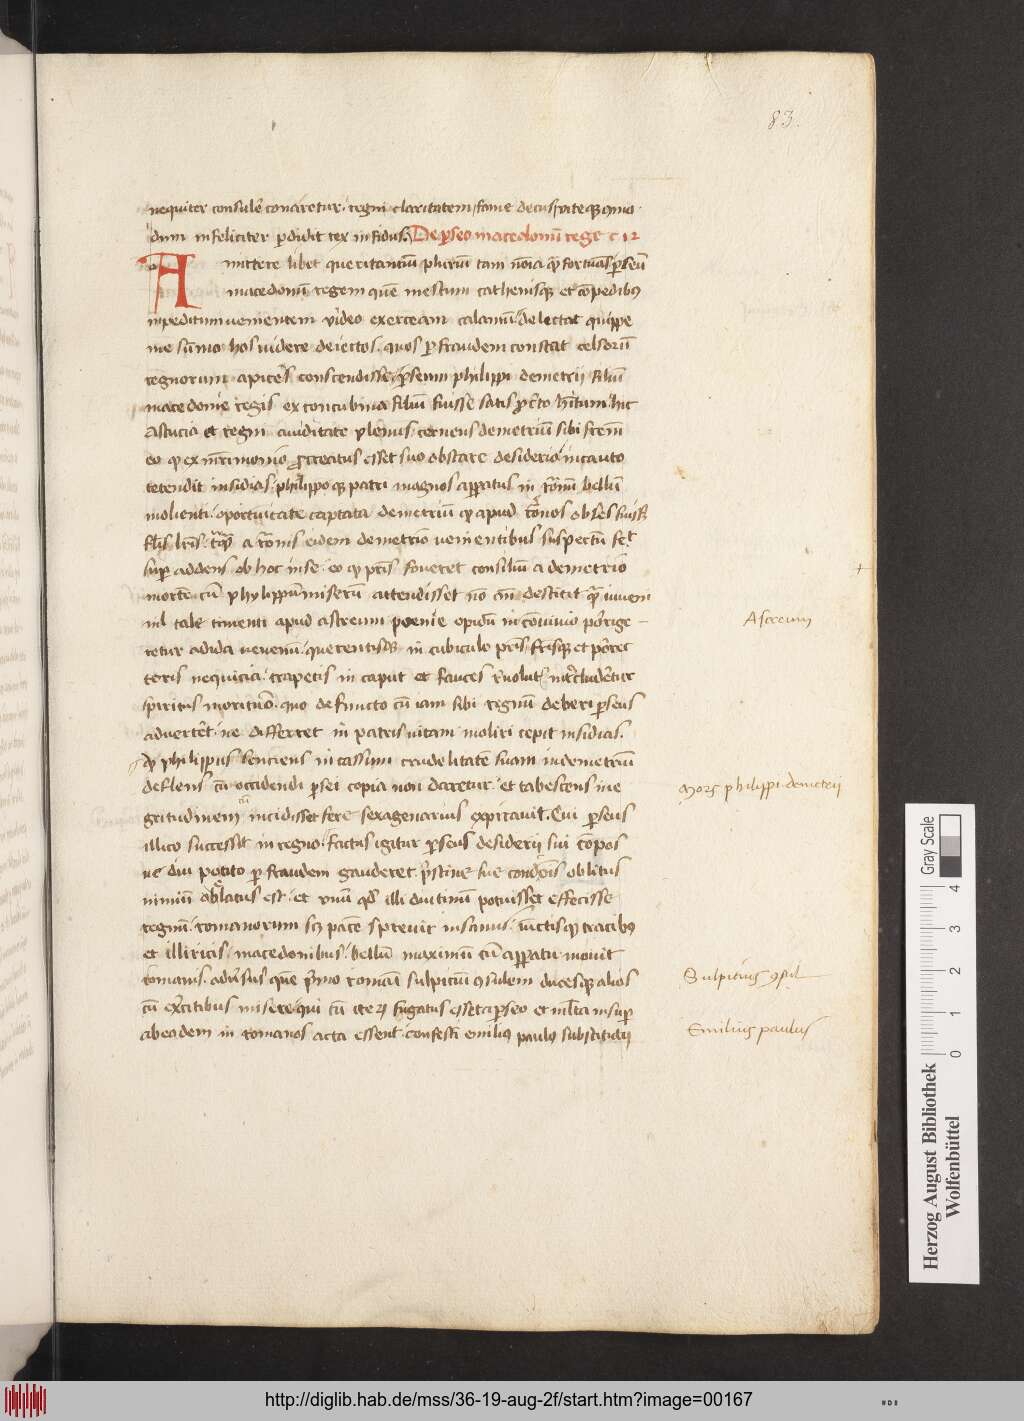 83.
nequiter consulẽ conaretur, regni claritatem, fame decus, viteq; quio
dum infeliciter p̱didit rex infidus. De p̱seo macedonũ rege c 12
Amittere libet queritantiũ pluriũ tam nõia q̃ fortunas, p̱seũ
macedonũ regem quẽ mestum cathenisq; et cõpedibꝰ
inpeditum venientem video exerceam calamũ, delectat quippe
me sũmo hos videre deiectos, quos p̱ fraudem constat celsorũ
regnorum apices conscendisse, p̱seum philippi demetrij filiũ
macedonie regis ex concubina filiũ fuisse satis p̱ c̃to hĩtum, hic
astucia et regni auiditate plenus, cernens demetriũ sibi frem̃
eo qꝫ ex mr̃imonio procreatus esset suo obstare desiderio, incauto
tetendit insidias, philippo qꝫ patri magnos app̱atus in rõm bellũ
molienti, oportunitate captata demetriũ qꝫ apud rõnos obses fuiss
a rõnis eidem demetrio venientibus suspectũ fec̃
suꝑ addens ob hoc in se, eo qꝫ pr̃is foueret consiliũ a demetrio
mortẽ cũ phylippũ miserũ attendisset nõ añ destitit q̃ iuueni
nil tale timenti apud astreum poenie opidũ in cõuiuio porrige -
retur adida venenũ, querentisq; in cubiculo pr̃is fr̃isq; et p̱rec
teris nequicia, trapetis in caput et fauces
spiritus morituro, quo defuncto cũ iam sibi regnũ deberi p̱seus
aduertẽt, ne differret in patris vitam moliri cepit insidias.
qꝫ philippus senciens in cassum crudelitatẽ suam in demetriũ
deflens cũ occidendi p̱sei copia non daretur et tabescens in e
gritudinem incidisset fere sexagenarius expirauit. Cui p̱seus
illico successit in regno, factus igitur p̱seus desiderij sui cõpos
ne diu potito p̱ fraudem gauderet p̃stine sue condẽis oblitus
nimiũ ablatus est, et vnũ qd̃ illi diutinũ potuisset effecisse
regnũ, romanorum scꝫ pacẽ spreuit insanus, iunctisqꝫ tracibꝰ
et illiricis, macedonibus, bellũ maximũ cũ app̱atu mouit
romanis, aduersus quẽ p̃mo romañ sulpiciũ ꝯsulem ducesq; alios
cũ exc̃itibus misere, qui cũ iteꝝ fugatus esset a p̱seo et ml̃ta insuꝑ
ab eodem in romanos acta essent, confestĩ emiliꝰ pauluꝰ substituitĩ
Astreum
Mors philippi demetrij
Sulpitius ꝯsul
Emilius paulus
Gray Scale
0 1 2 3 4
Herzog August Bibliothek
Wolfenbüttel
http://diglib.hab.de/mss/36-19-aug-2f/start.htm?image=00167